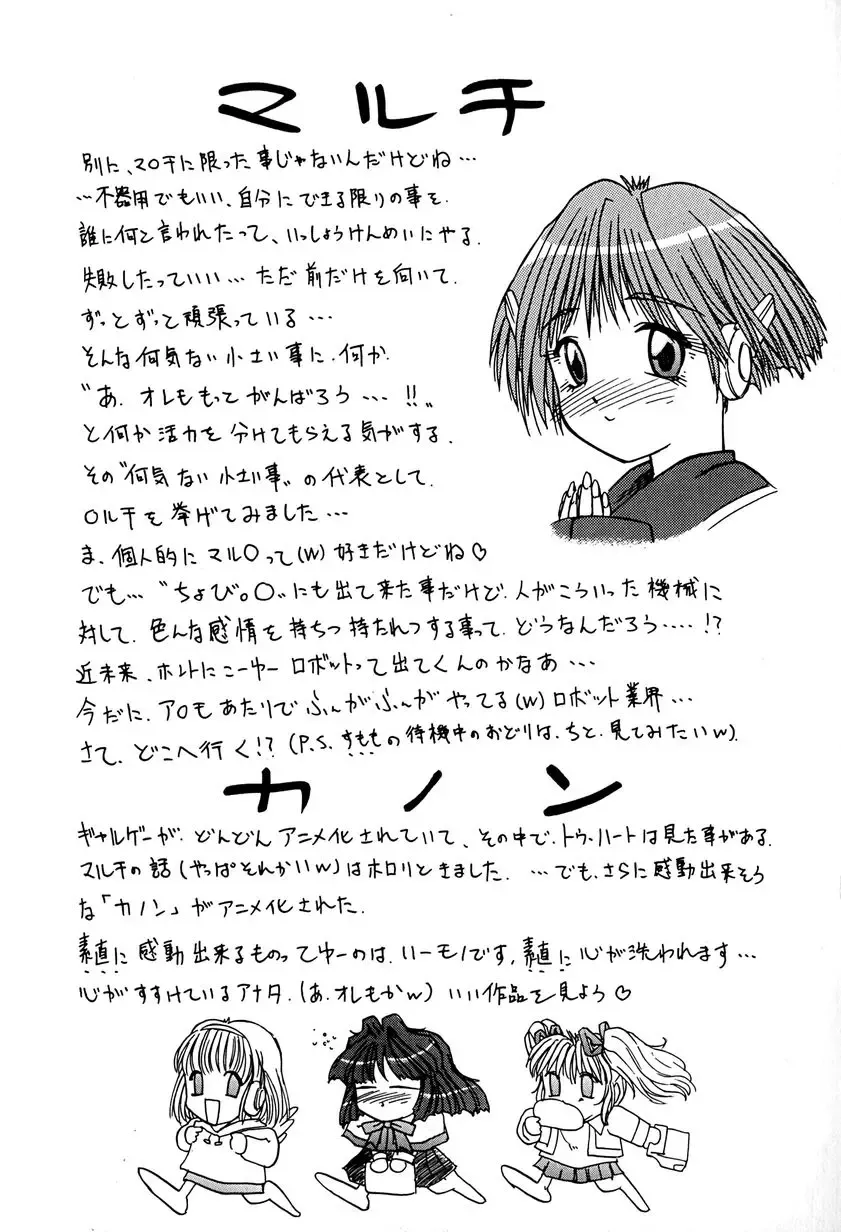 マルチ
別に、マ〇チに限った事じゃないんだけどね…
…不器用でもいい、自分にできる限りの事を.
誰に何と言われたって、いっしょうけんめいにやる.
失敗したっていい… ただ 前だけを向いて.
ずっとずっと頑張っている…
そんな何気ない小さい事に.何か.
〝あ. オレももって がんばろう …!!〟
と何か活力を分けてもらえる気がする.
その〝何気ない小さい事〟の代表として.
〇ルチを挙げてみました…
ま、個人的に マル〇って(w)好きだけどね♡
でも…〝ちょび。〇〟にも出て来た事だけど.人がこういった機械に
対して.色んな感情を持ちつ持たれつする事って.どうなんだろう….!?
近未来、ホントにこーゆー ロボットって出てくんのかなあ…
今だに.ア〇もあたりで ふんがふんが やってる(w)ロボット業界…
さて.どこへ行く!? (P.S. すももの待機中のおどりは.ちと.見てみたいw).
カノン
ギャルゲーが. どんどん アニメ化されていて、その中で.トゥ.ハートは見た事がある.
マルチの話(やっぱそれかいw)はホロリときました. …でも.さらに感動出来そう
な「カノン」がアニメ化された.
素直に感動出来るものってゆーのは、いーモノです,素直に心が洗われます…
心がすすけているアナタ.(あ.オレもかw)いい作品を見よう♡